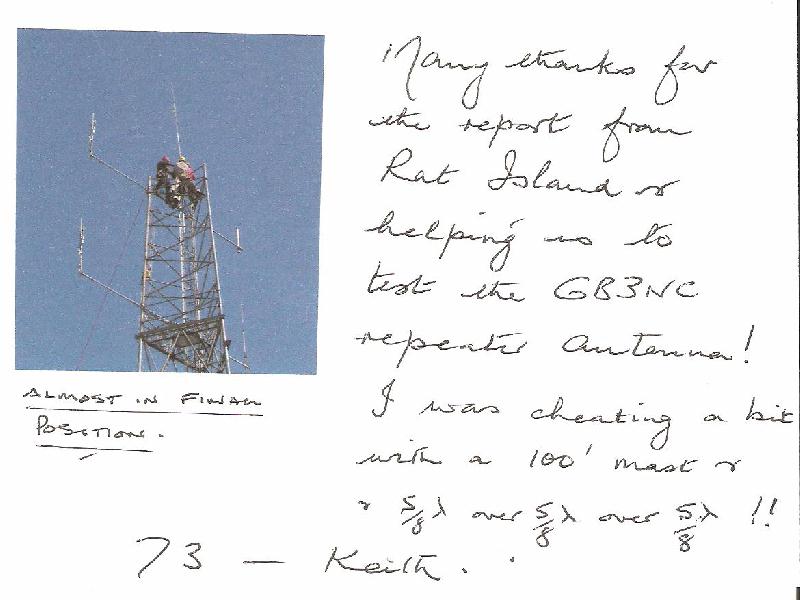 Many thanks for
the report from
Rat Island &
helping us to
test the GB3NC
repeater antenna!
I was cheating a bit
with a 100' mast &
& 5/8 λ over 5/8 λ over 5/8 λ !!
73 — Keith.
ALMOST IN FINAL
POSITION.